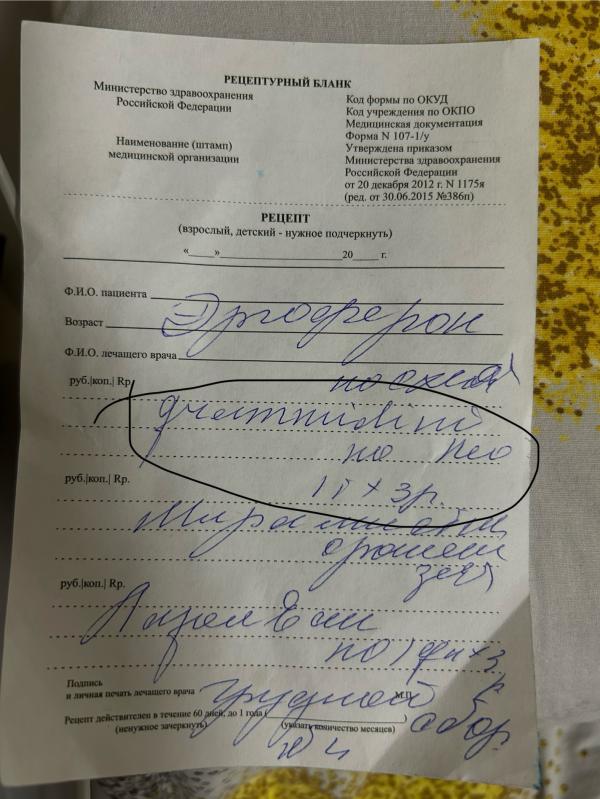 РЕЦЕПТУРНЫЙ БЛАНК
Министерство здравоохранения
Российской Федерации
Наименование (штамп)
медицинской организации
Код формы по ОКУД
Код учреждения по ОКПО
Медицинская документация
Форма N 107-1/у
Утверждена приказом
Министерства здравоохранения
Российской Федерации
от 20 декабря 2012 г. N 1175я
(ред. от 30.06.2015 №386п)
РЕЦЕПТ
(взрослый, детский - нужное подчеркнуть)
«____»____________________20____ г.
Ф.И.О. пациента
Возраст Эргоферон
Ф.И.О. лечащего врача
руб.|коп.| Rp. по схеме
по
1т х 3р.
руб.|коп.| Rp.
Мирамистин
орошен
зева
руб.|коп.| Rp.
по 1 х 3
р
Подпись
и личная печать лечащего врача М.П.
Грудной
сбор
Рецепт действителен в течение 60 дней, до 1 года (____________________)
(ненужное зачеркнуть) (указать количество месяцев)
№ 4